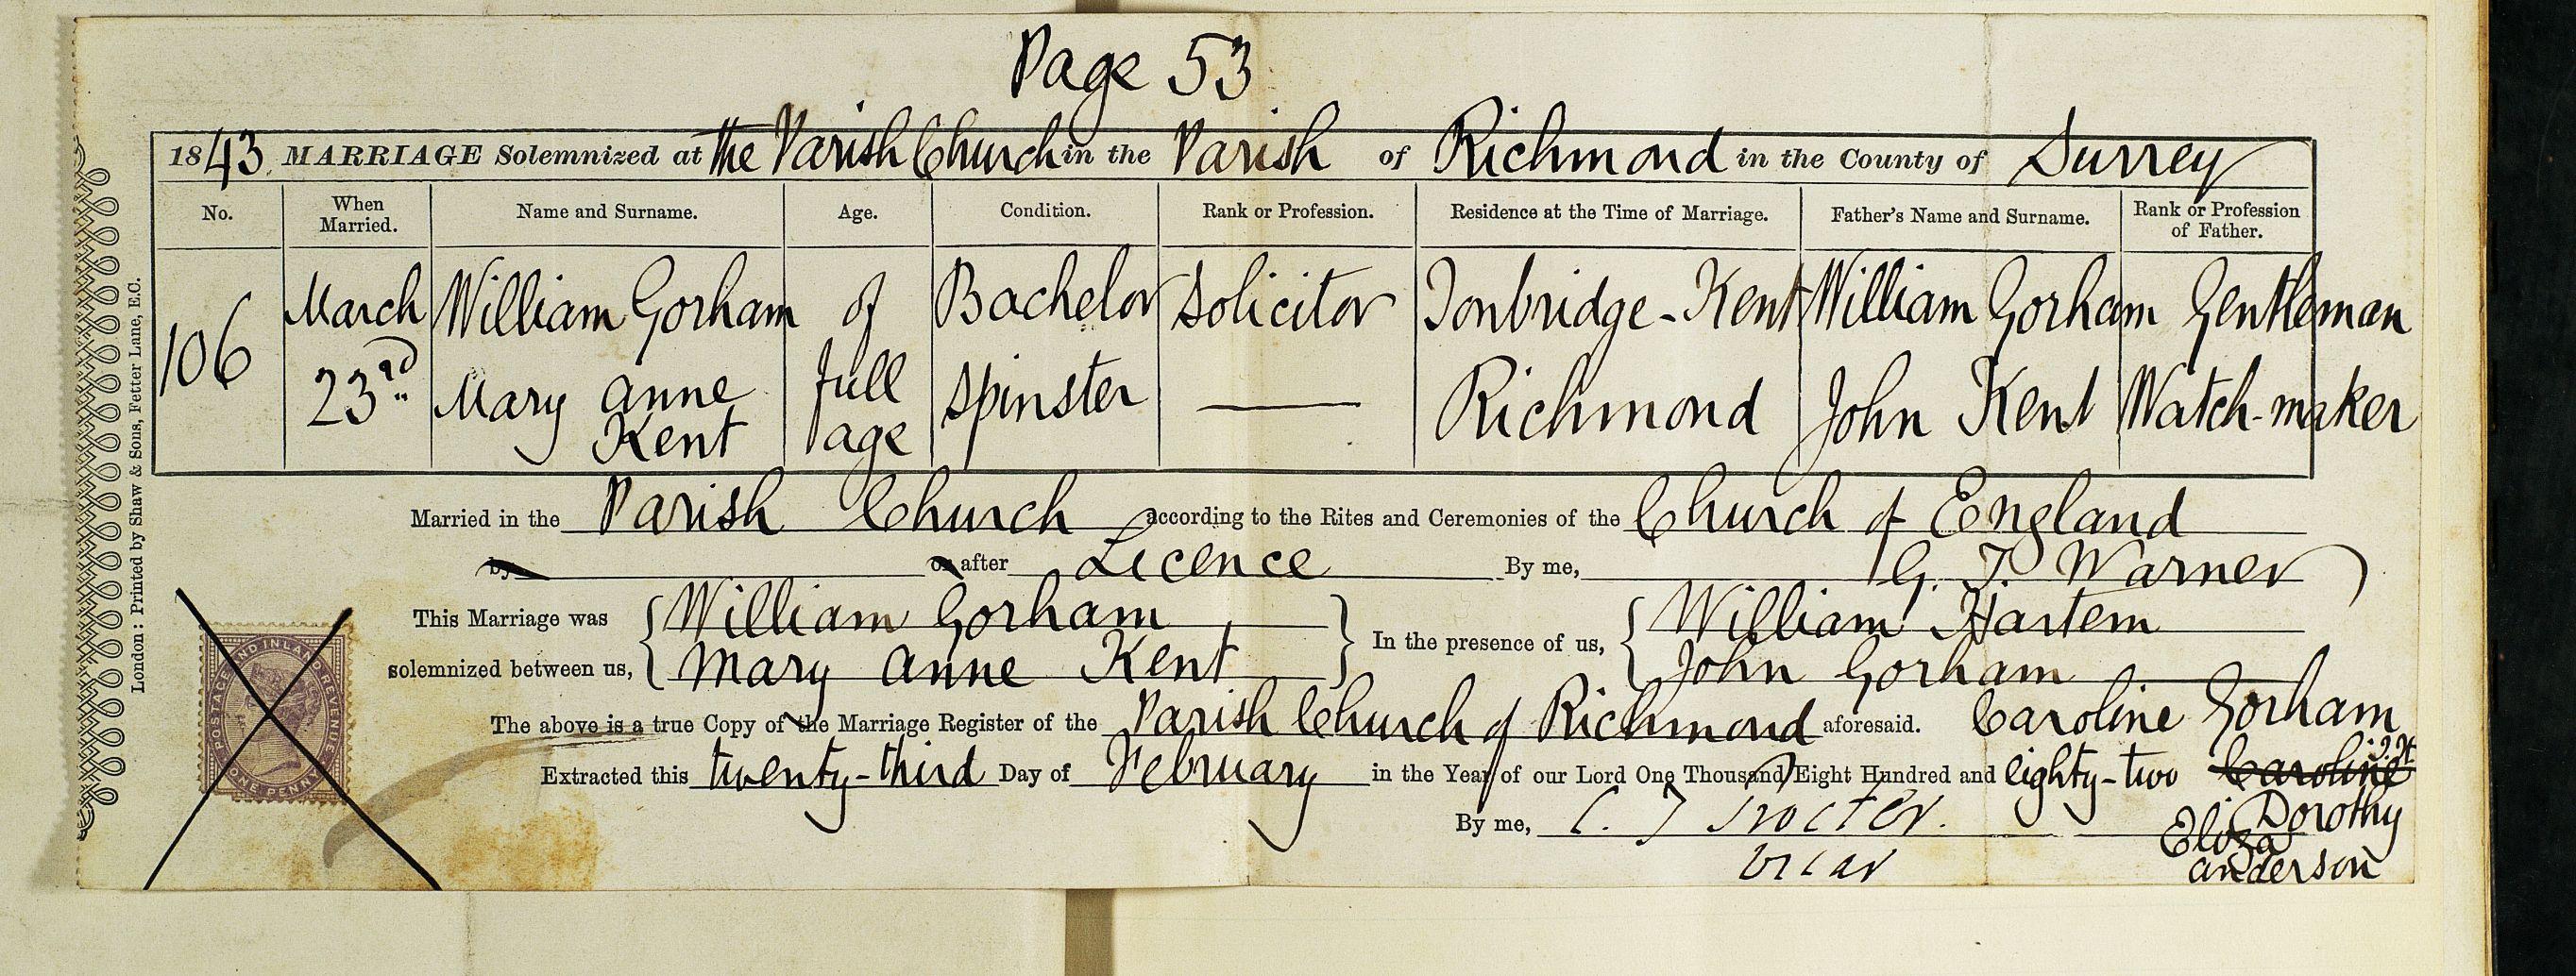 Page 53
1843. MARRIAGE Solemnized at the Parish Church in the Parish of Richmond in the County of Surrey
No. When Married. Name and Surname. Age. Condition. Rank or Profession. Residence at the Time of Marriage. Father's Name and Surname. Rank or Profession of Father.
106 March 23rd William Gorham of full age Bachelor Solicitor Tonbridge - Kent William Gorham Gentleman
Mary Anne Kent Spinster — Richmond John Kent Watch-maker
Married in the Parish Church according to the Rites and Ceremonies of the Church of England
by or after Licence By me, G. T. Warner
This Marriage was solemnized between us, { William Gorham } In the presence of us, { William Hartem
Mary Anne Kent John Gorham
The above is a true Copy of the Marriage Register of the Parish Church of Richmond aforesaid. Caroline Gorham
Extracted this twenty-third Day of February in the Year of our Lord One Thousand Eight Hundred and eighty-two Caroline
By me, C. T. Procter. Dorothy
Vicar Eliza
Anderson
POSTAGE AND INLAND REVENUE
ONE PENNY
London: Printed by Shaw & Sons, Fetter Lane, E.C.